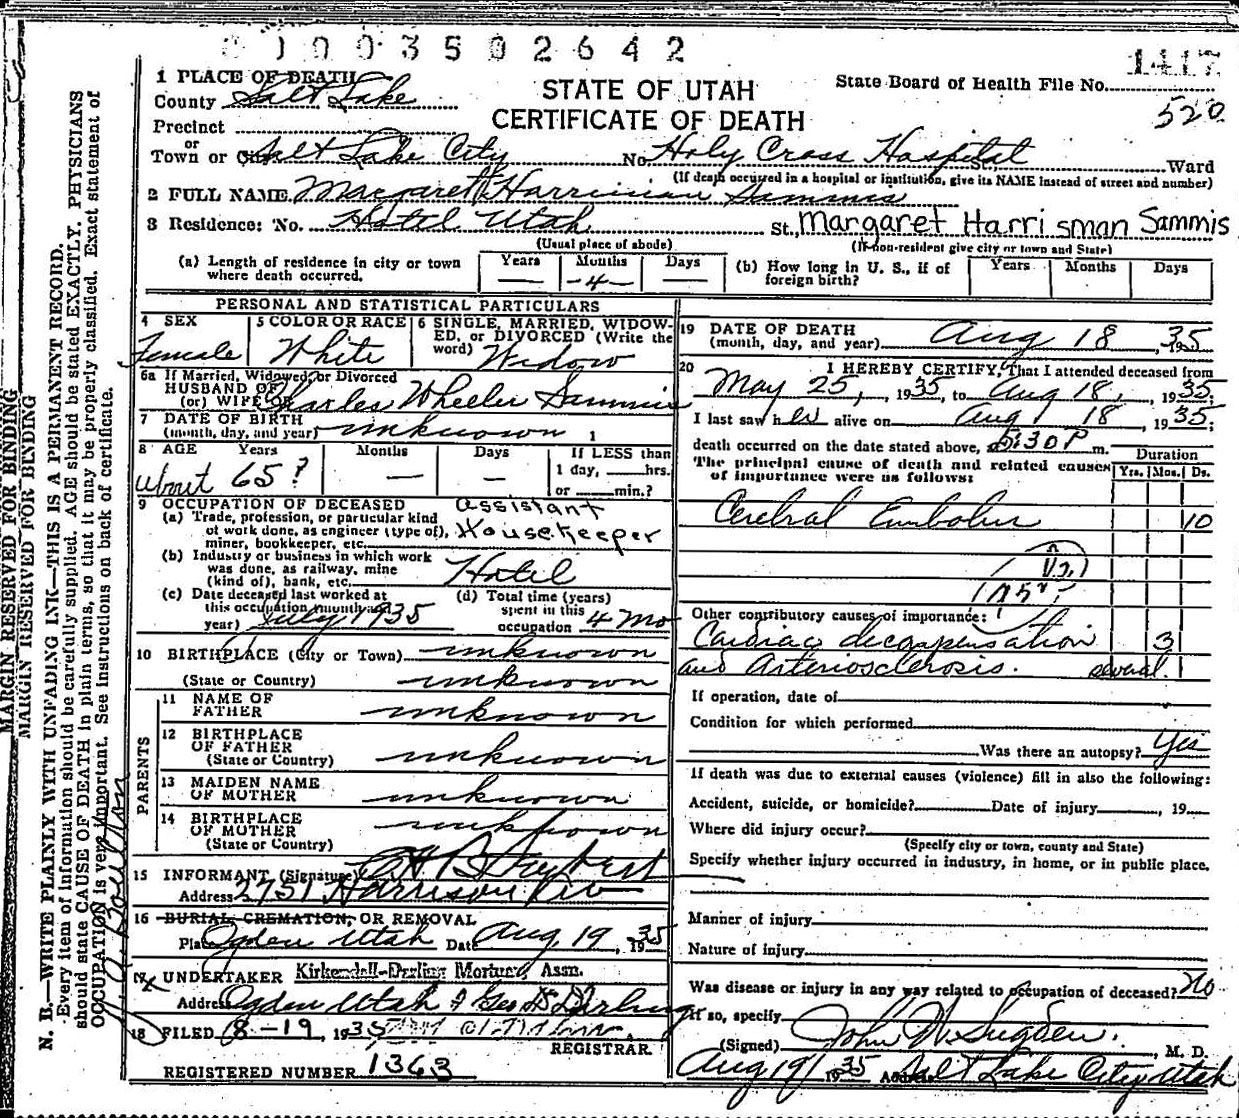 01003502642
1417
1 PLACE OF DEATH
County Salt Lake
STATE OF UTAH
CERTIFICATE OF DEATH
State Board of Health File No.
520
Precinct
or
Town or City Salt Lake City No. Holy Cross Hospital St. Ward
(If death occurred in a hospital or institution, give its NAME instead of street and number)
2 FULL NAME Margaret Harrisman Sammis
3 Residence: No. Hotel Utah St., Margaret Harrisman Sammis
(Usual place of abode) (If non-resident give city or town and State)
(a) Length of residence in city or town where death occurred. Years — Months -4- Days —
(b) How long in U. S., if of foreign birth? Years Months Days
PERSONAL AND STATISTICAL PARTICULARS
4 SEX Female
5 COLOR OR RACE White
6 SINGLE, MARRIED, WIDOWED, or DIVORCED (Write the word) Widow
6a If Married, Widowed, or Divorced
HUSBAND OF
(or) WIFE OF Charles Wheeler Sammis
7 DATE OF BIRTH
(month, day, and year) unknown 1
8 AGE Years about 65? Months — Days — If LESS than
1 day, hrs.
or min.?
9 OCCUPATION OF DECEASED
(a) Trade, profession, or particular kind of work done, as engineer (type of), miner, bookkeeper, etc. Assistant Housekeeper
(b) Industry or business in which work was done, as railway, mine (kind of), bank, etc. Hotel
(c) Date deceased last worked at this occupation (month and year) July 1935
(d) Total time (years) spent in this occupation 4 mo
10 BIRTHPLACE (City or Town) unknown
(State or Country) unknown
PARENTS
11 NAME OF FATHER unknown
12 BIRTHPLACE OF FATHER
(State or Country) unknown
13 MAIDEN NAME OF MOTHER unknown
14 BIRTHPLACE OF MOTHER
(State or Country) unknown
15 INFORMANT (Signature)
Address 2751 Harrison
16 BURIAL, CREMATION, OR REMOVAL
Place Ogden Utah Date Aug 19, 1935
17 UNDERTAKER Kirkendall-Darling Mortuary Assn.
Address Ogden Utah
18 FILED 8-19, 1935
REGISTRAR
REGISTERED NUMBER 1363
19 DATE OF DEATH
(month, day, and year) Aug 18, 1935
20 I HEREBY CERTIFY, That I attended deceased from
May 25, 1935, to Aug 18, 1935;
I last saw her alive on Aug 18, 1935;
death occurred on the date stated above, 5:30 P m.
The principal cause of death and related causes of importance were as follows:
Duration
Yrs. Mos. Ds.
Cerebral Embolus 10
Other contributory causes of importance:
Cardiac decompensation 3
and Arteriosclerosis. several
If operation, date of
Condition for which performed
Was there an autopsy? Yes
If death was due to external causes (violence) fill in also the following:
Accident, suicide, or homicide? Date of injury, 19
Where did injury occur?
(Specify city or town, county and State)
Specify whether injury occurred in industry, in home, or in public place.
Manner of injury
Nature of injury
Was disease or injury in any way related to occupation of deceased? No
If so, specify
(Signed) John W. Sugden, M. D.
Aug 19 1935 Address Salt Lake City Utah
MARGIN RESERVED FOR BINDING
MARGIN RESERVED FOR BINDING
N. B.—WRITE PLAINLY WITH UNFADING INK—THIS IS A PERMANENT RECORD.
Every item of information should be carefully supplied. AGE should be stated EXACTLY. PHYSICIANS
should state CAUSE OF DEATH in plain terms, so that it may be properly classified. Exact statement of
OCCUPATION is very important. See instructions on back of certificate.